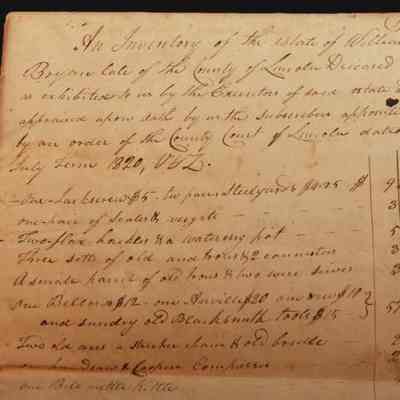 An Inventory of the estate of William
Bryan late of the County of Lincoln Deceased
as exhibited to us by the Executors of said estate
appraised upon oath by us the subscribers appointed
by an order of the County Court of Lincoln dated
July Term 1820, VIZ.
$5 - two pair Steelyards $4.25 $ 9
one pair of Scales & weights - 3
- Two flax hackles & a watering pot - 5
Three setts of old and irons & 2 cannisters 3
A small parcel of old irons & two wire sieves 3
one Bellows $12 - one Anville $20 one vice $10 }
and sundry old Blacksmith tools $15 } 57
- Two old axes a chain & old
one hand saw & Coopers Compasses
one Bell mettle Kittle